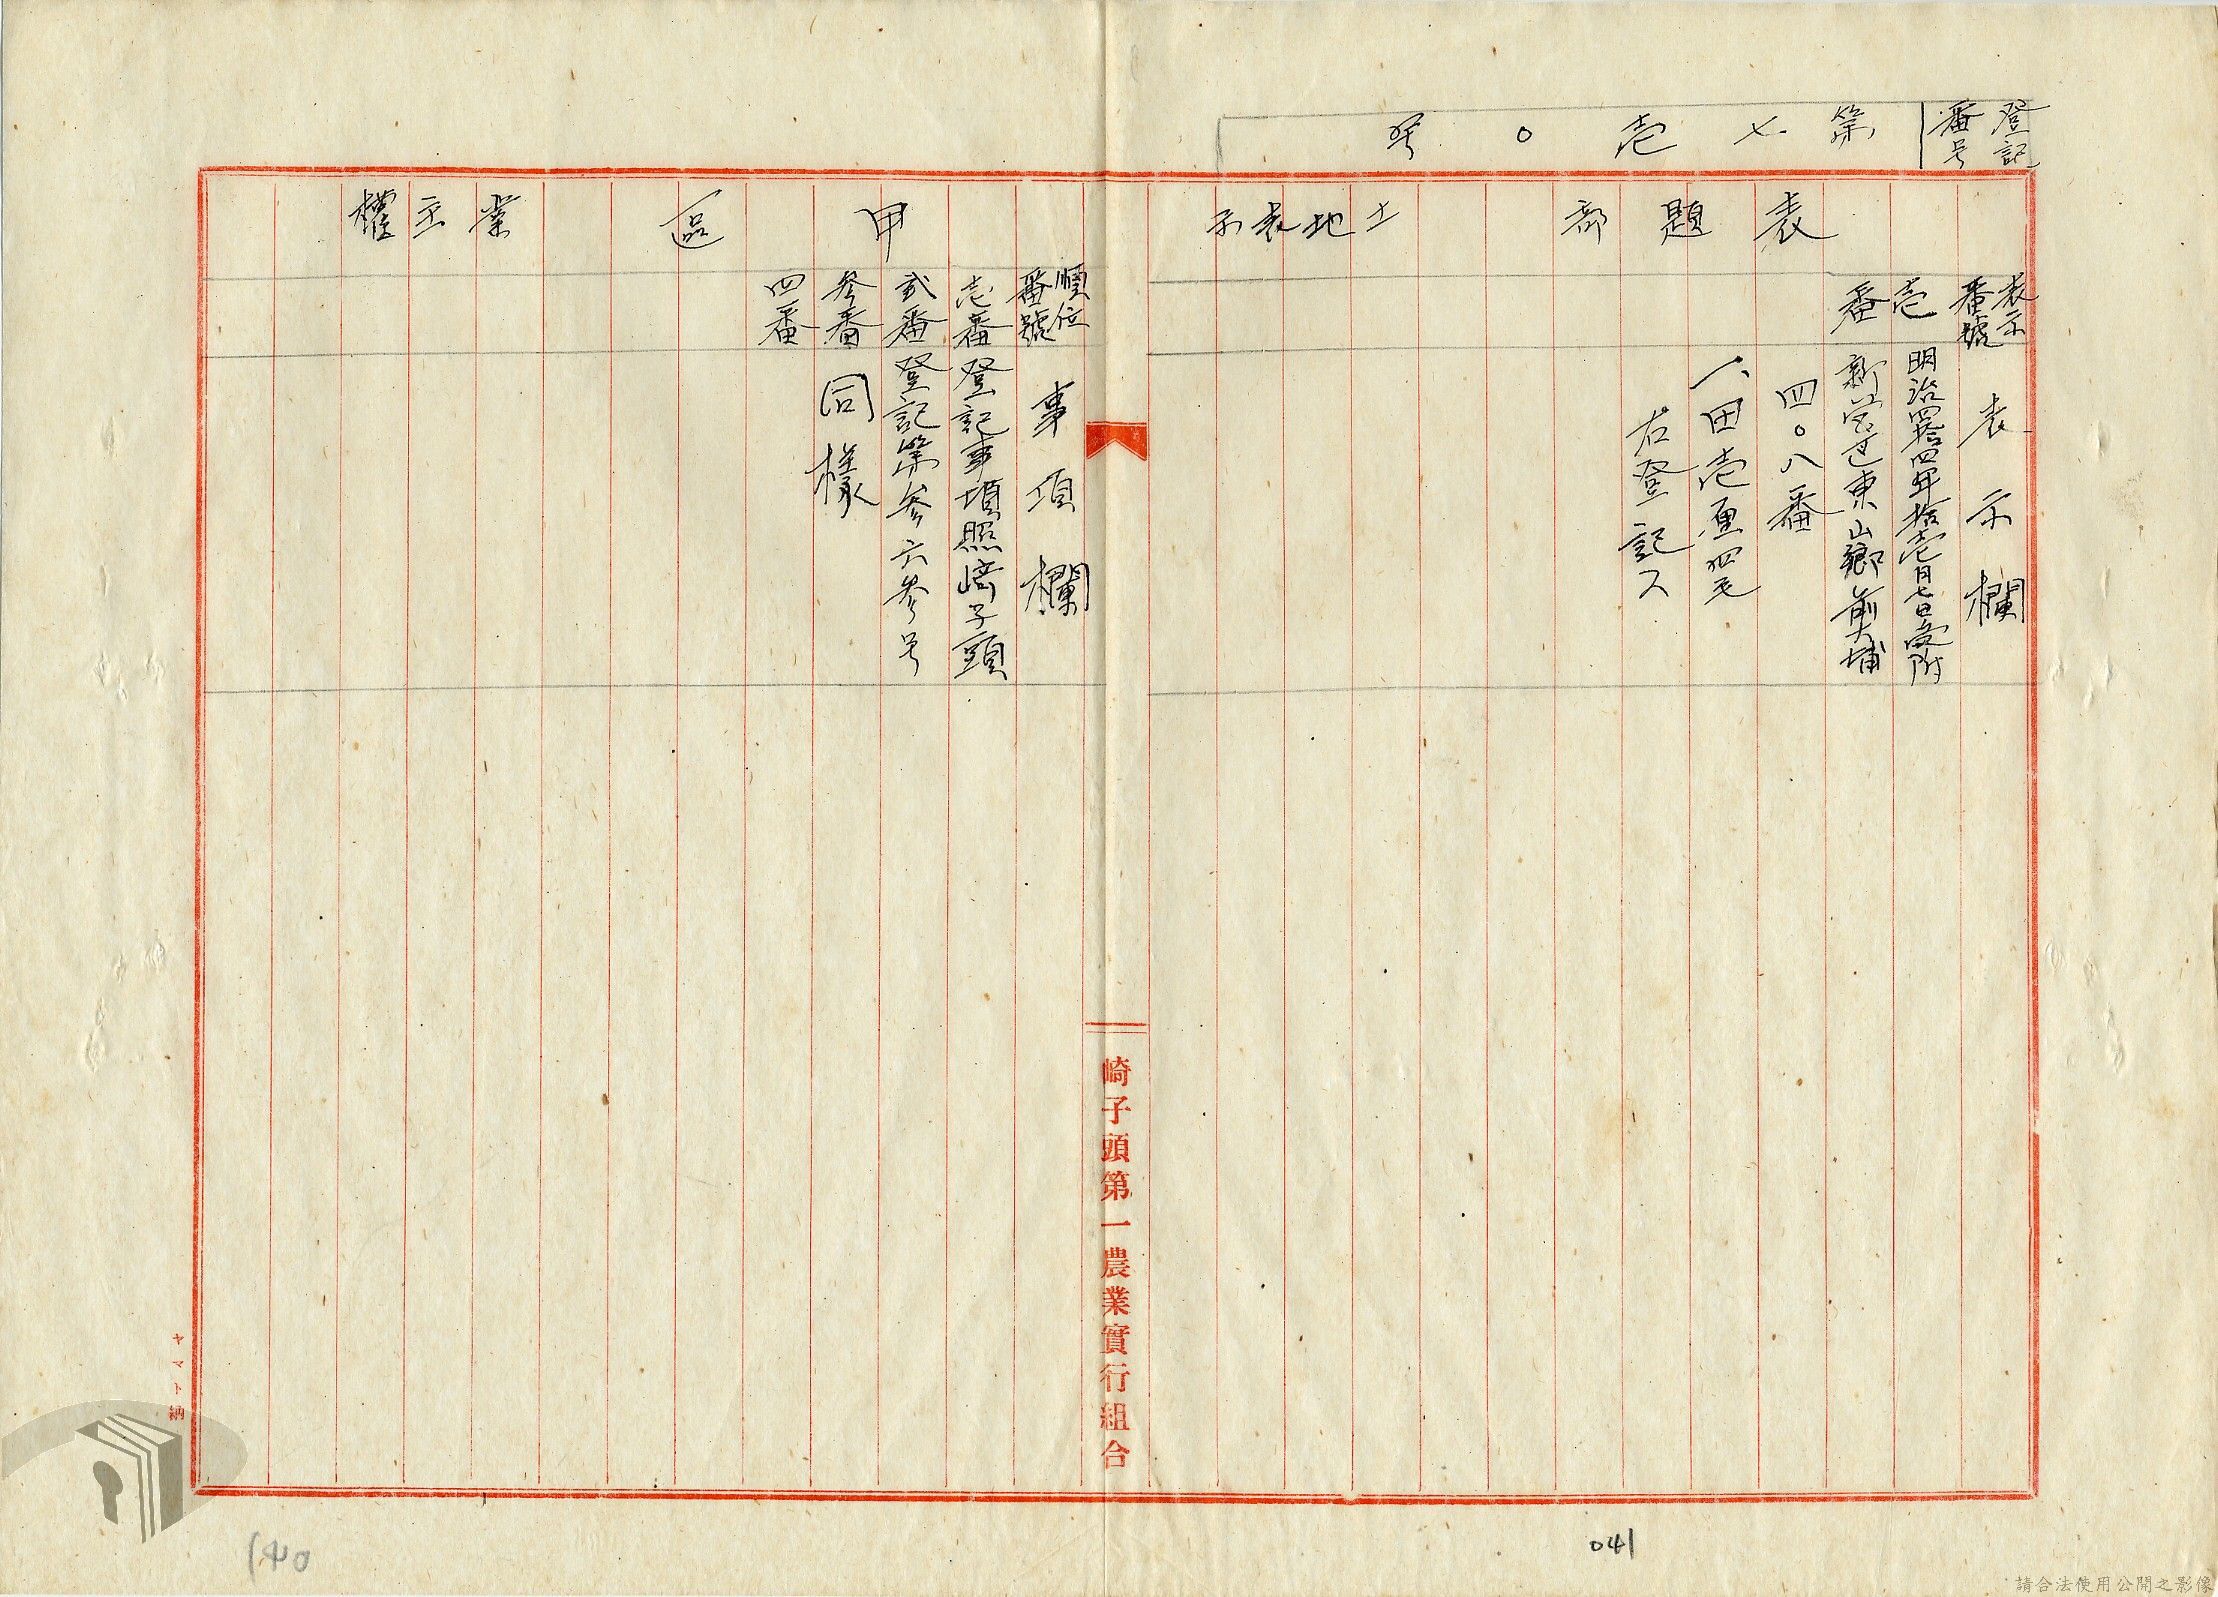 登記
番号
第七壱〇号
表題部
土地表示
表示
番號
表示欄
壱
番
明治四拾四年拾壱月七日受附
新営区東山鄉前大埔
四〇八番
一、田壱厘四毛
右登記ス
甲區
業主權
順位
番號
事項欄
壱番
登記事項照崎子頭
弐番
登記第参六参号
参番
同樣
四番
崎子頭第一農業實行組合
ヤマト納
140
041
請合法使用公開之影像